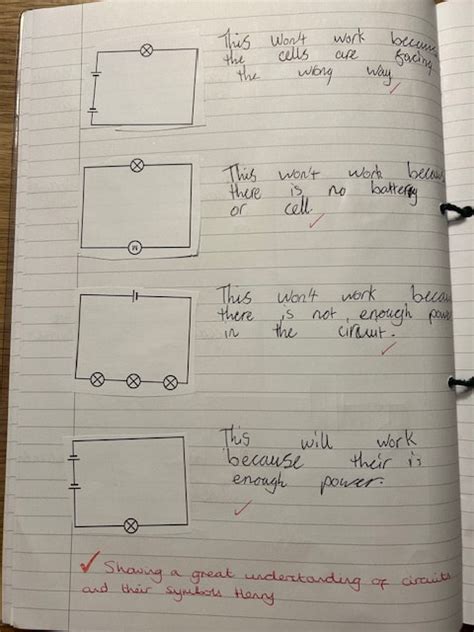 This won't work becaus
the cells are facing
the wrong way
This won't work becau
there is no battery
or cell.
M
This won't work becau
there is not enough powe
in the circuit.
This will work
because their is
enough power.
Showing a great understanding of circuits
and their symbols Henry